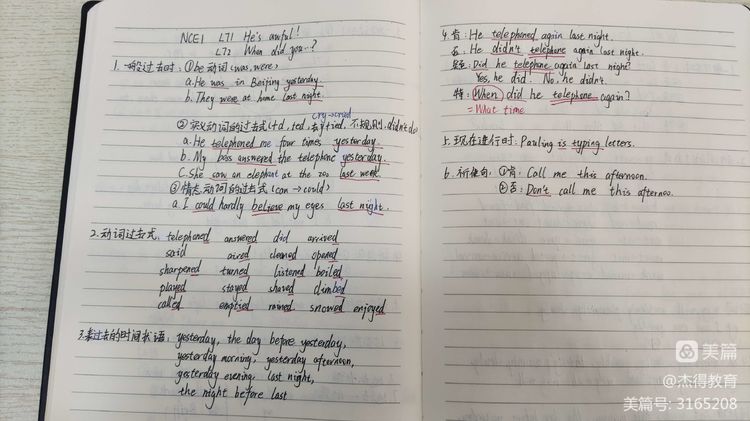 NCE1 L71 He's awful!
L72 When did you..?
1. 一般过去时: ①be动词(was, were)
a. He was in Beijing yesterday.
b. They were at home last night.
cry→cried
②实义动词的过去式(+d, +ed, 去y+ied, 不规则, didn't do
a. He telephoned me four times yesterday.
b. My boss answered the telephone yesterday.
C. She saw an elephant at the zoo last week.
③情态动词的过去式(can→could)
a. I could hardly believe my eyes last night.
2. 动词过去式: telephoned answered did arrived
said aired cleaned opened
sharpened turned listened boiled
played stayed shaved climbed
called emptied rained snowed enjoyed
3. 表过去的时间状语: yesterday, the day before yesterday,
yesterday morning, yesterday afternoon,
yesterday evening, last night,
the night before last
4. 肯: He telephoned again last night.
否: He didn't telephone again last night.
疑: Did he telephone again last night?
Yes, he did. No, he didn't.
特: When did he telephone again?
=What time
5. 现在进行时: Pauling is typing letters.
6. 祈使句: ①肯: Call me this afternoon.
②否: Don't call me this afternoo.
美篇
@杰得教育
美篇号: 3165208